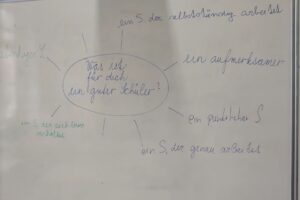 ein S. der selbstständig arbeitet
ein aufmerksamer
Was ist
für dich
ein guter Schüler?
ein pünktlicher S
ein S, der genau arbeitet
ein S.